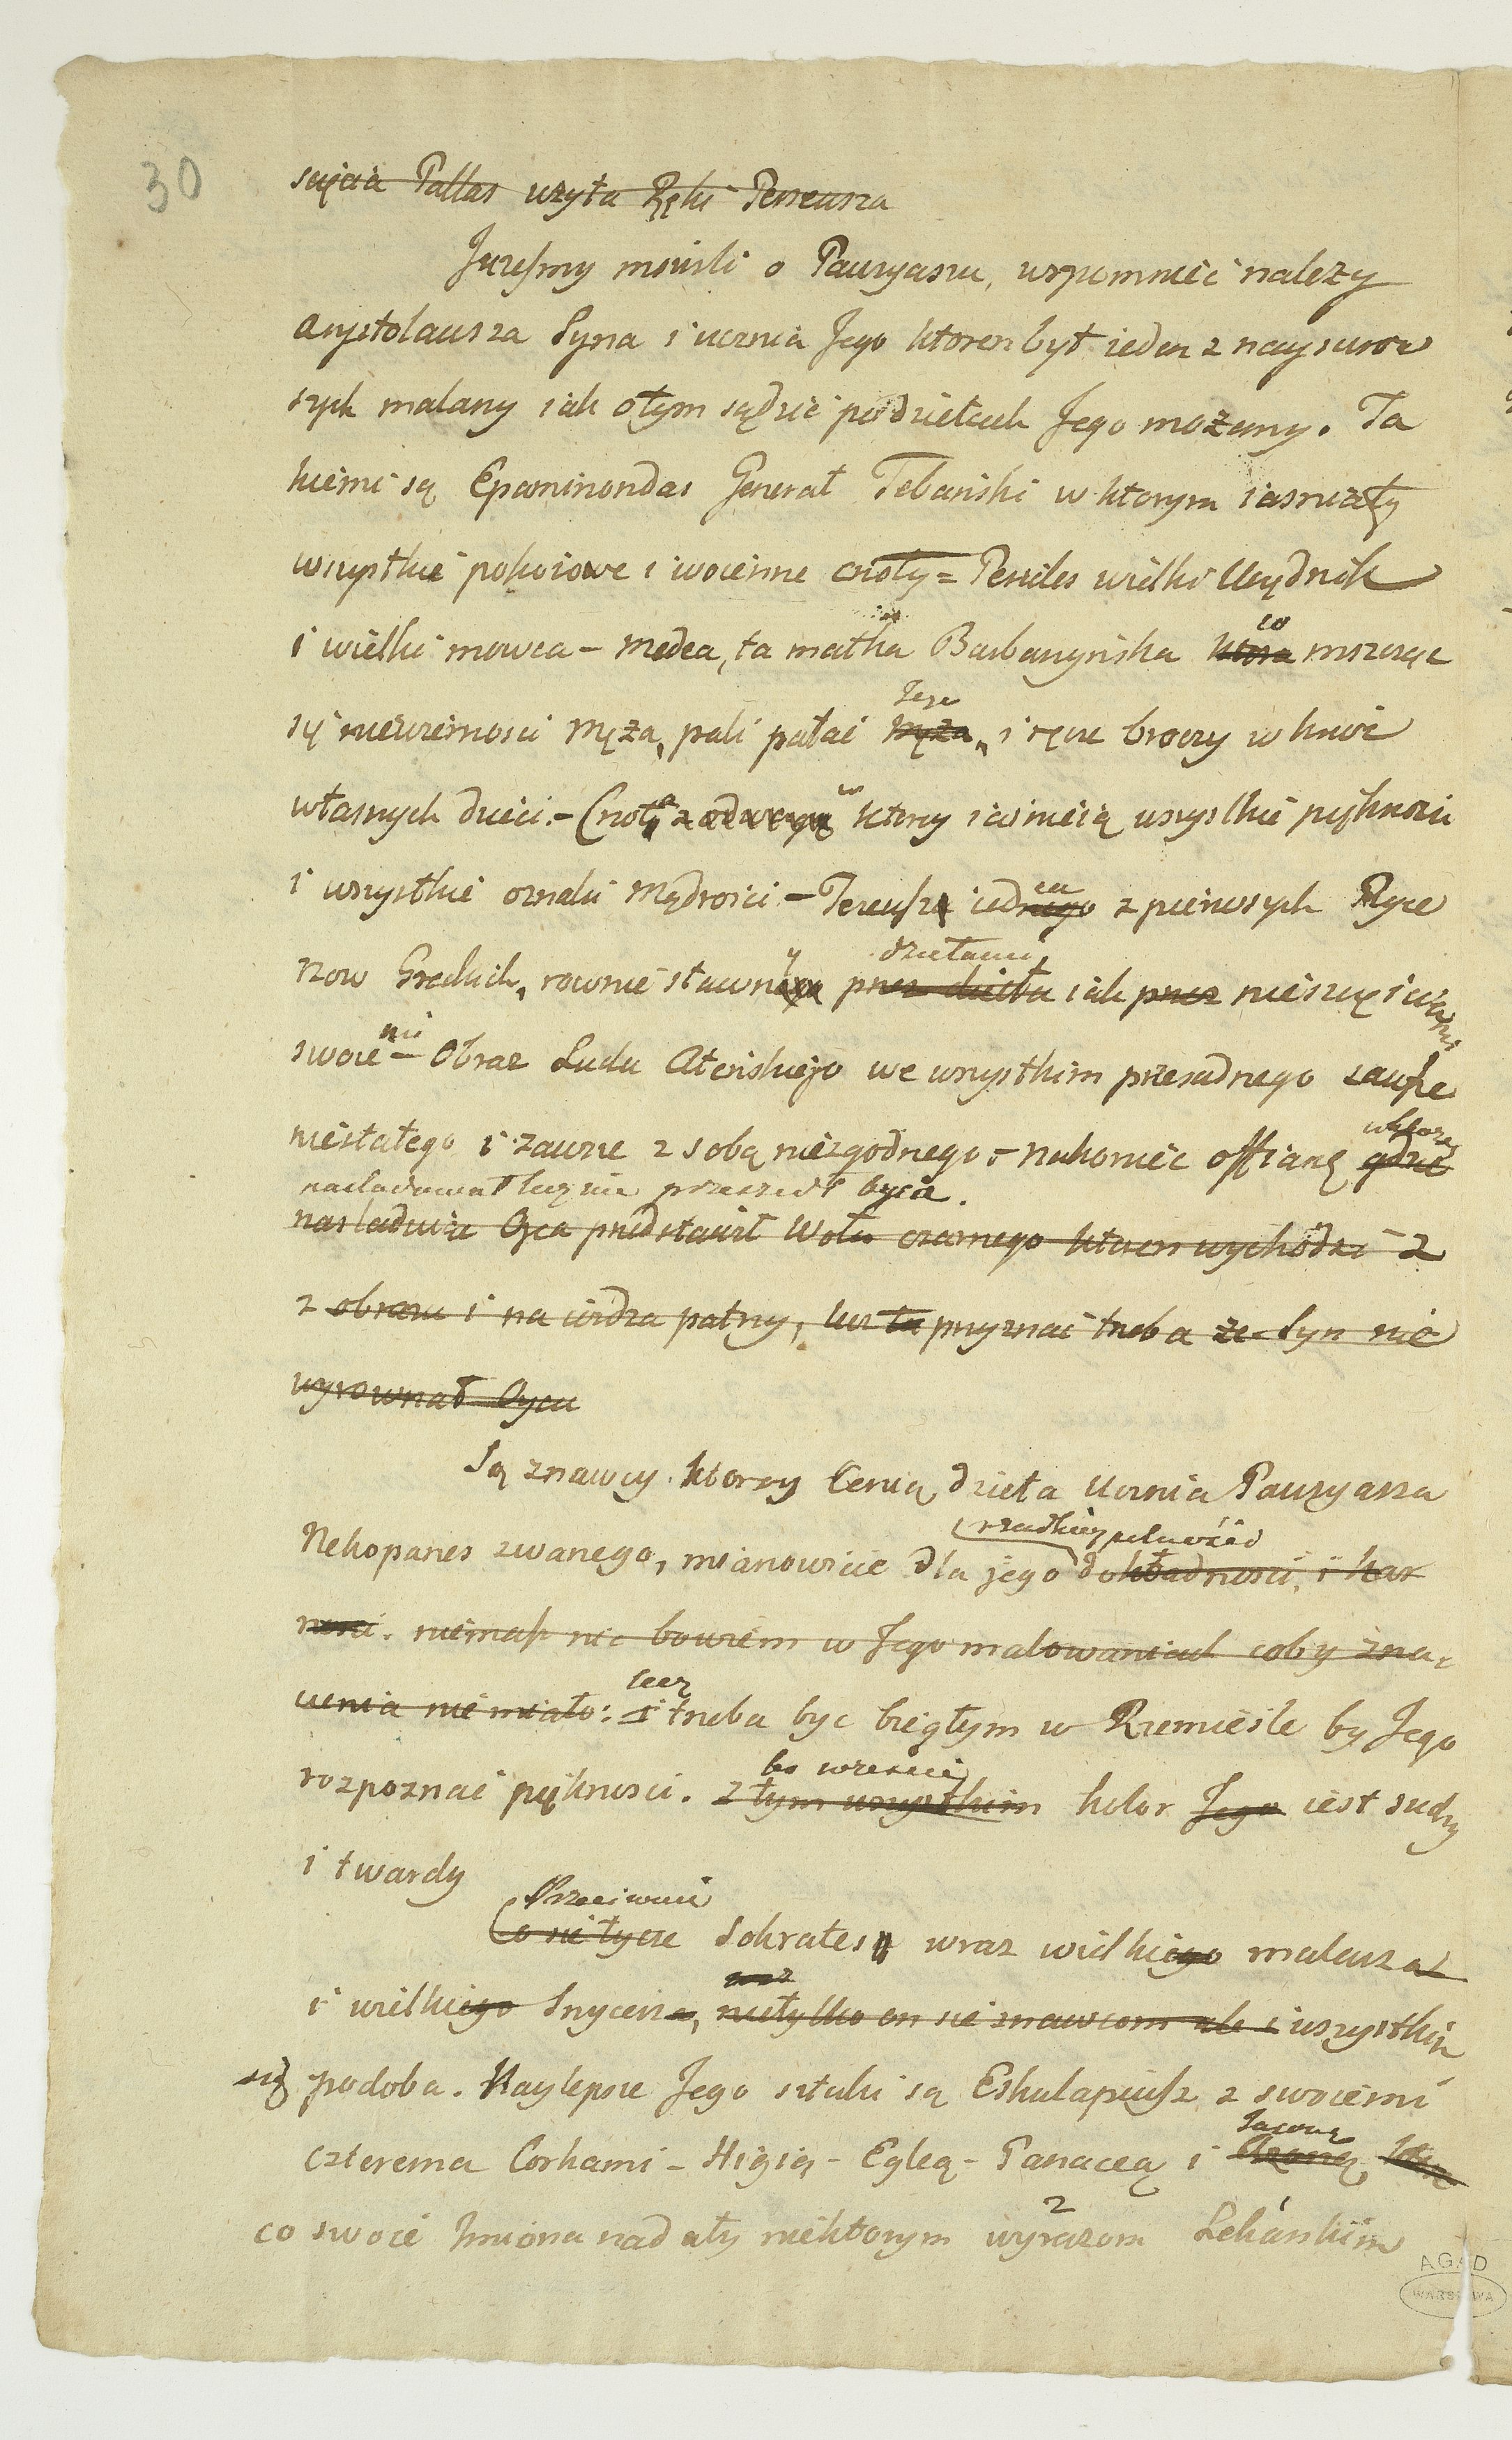 30
Pallas użyła Ręki Perseusza
mówili o Pauzyaszu, wspomnieć należy
Arystolausza Syna i ucznia Jego ktoren był ieden z naysurow
szych malarzy iak o tym sądzić po dziełach Jego możemy. Ta
kiemi są Epaminondas Generał Tebański w ktorym iasniały
wszystkie pokoiowe i woienne cnoty = Perikles wielki Urzędnik
co
i wielki mowca - Medea, ta matka Barbarzyńska ktora mszcząc
Jego
się niewierności Męża, pali pałac Męża, i ręce broczy w krwi
w
własnych dzieci. - Cnota ktorey iaśnieią wszystkie piękności
en
i wszystkie oznaki Mądrości - Tezeusz iednego z pierwszych Ryce
y dziełami
rzow Greckich, rownie sławny przez dzieła iak przez nieszczęściami
mi
swoie - Obraz Ludu Ateńskiego we wszystkim przesadnego zawsze
niestałego i zawsze z sobą niezgodnego - nakoniec offiarę gdzie
nasladował lecz nie przeszedł Oyca.
nasladuiąc Oyca przedstawił Wołu czarnego ktoren wychodzi z
z obrazu i na widza patrzy, lecz tu przyznać trzeba ze Syn nie
wyrownał Oycu
Są znawcy ktorzy Cenią dzieła Ucznia Pauzyasza
rzadkiey pilności
Nekopanes zwanego, mianowicie dla jego dokładności, i kar
ności. niemasz nic bowiem w Jego malowaniach coby zna,
lecz
czenia nie miało: i trzeba byc biegłym w Rzemieśle by Jego
bo wreszcie
rozpoznać piękności. z tym wszystkim kolor Jego iest suchy
i twardy
Przeciwnie
Co sie tycze Sokrates wraz wielkiego malarza
i wielkiego Snycerza, nietylko on sie znawcom ale i wszystkim
się podoba. Naylepsze Jego sztuki są Eskulapiusz z swoiemi
Jazoną
czterema Corkami - Higią - Egleą - Panaceą i
2
co swoie Imiona nadały niektorym wyrazom Lekarskim
AGAD
WARSZAWA